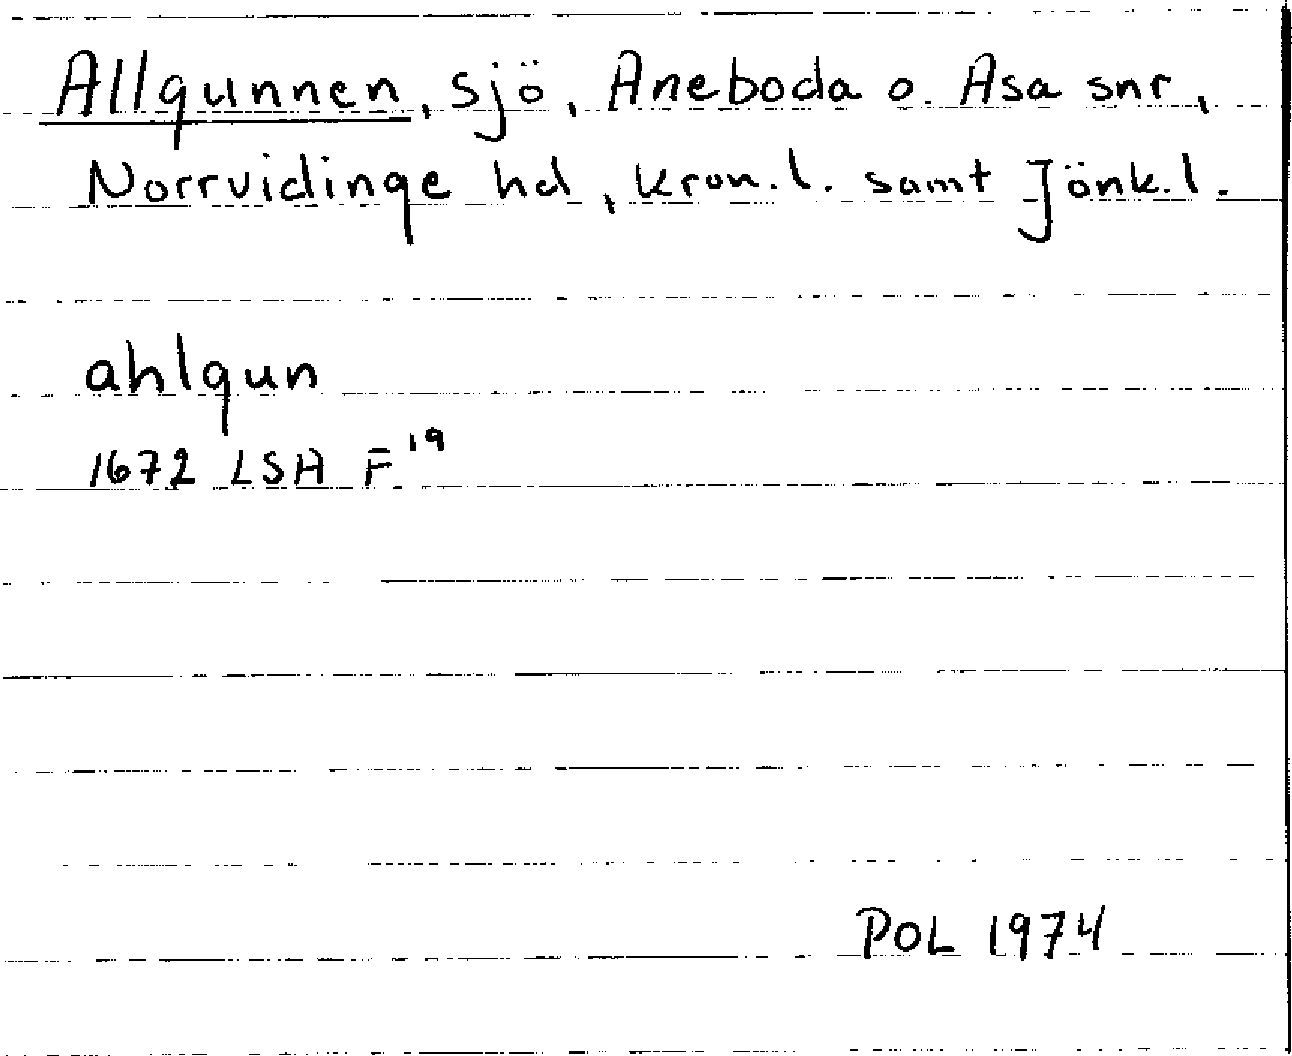 Allgunnen, sjö, Aneboda o. Asa snr,
Norrvidinge hd, kron.l. samt Jönk.l.
ahlgun
1672 LSA F 19
POL 1974